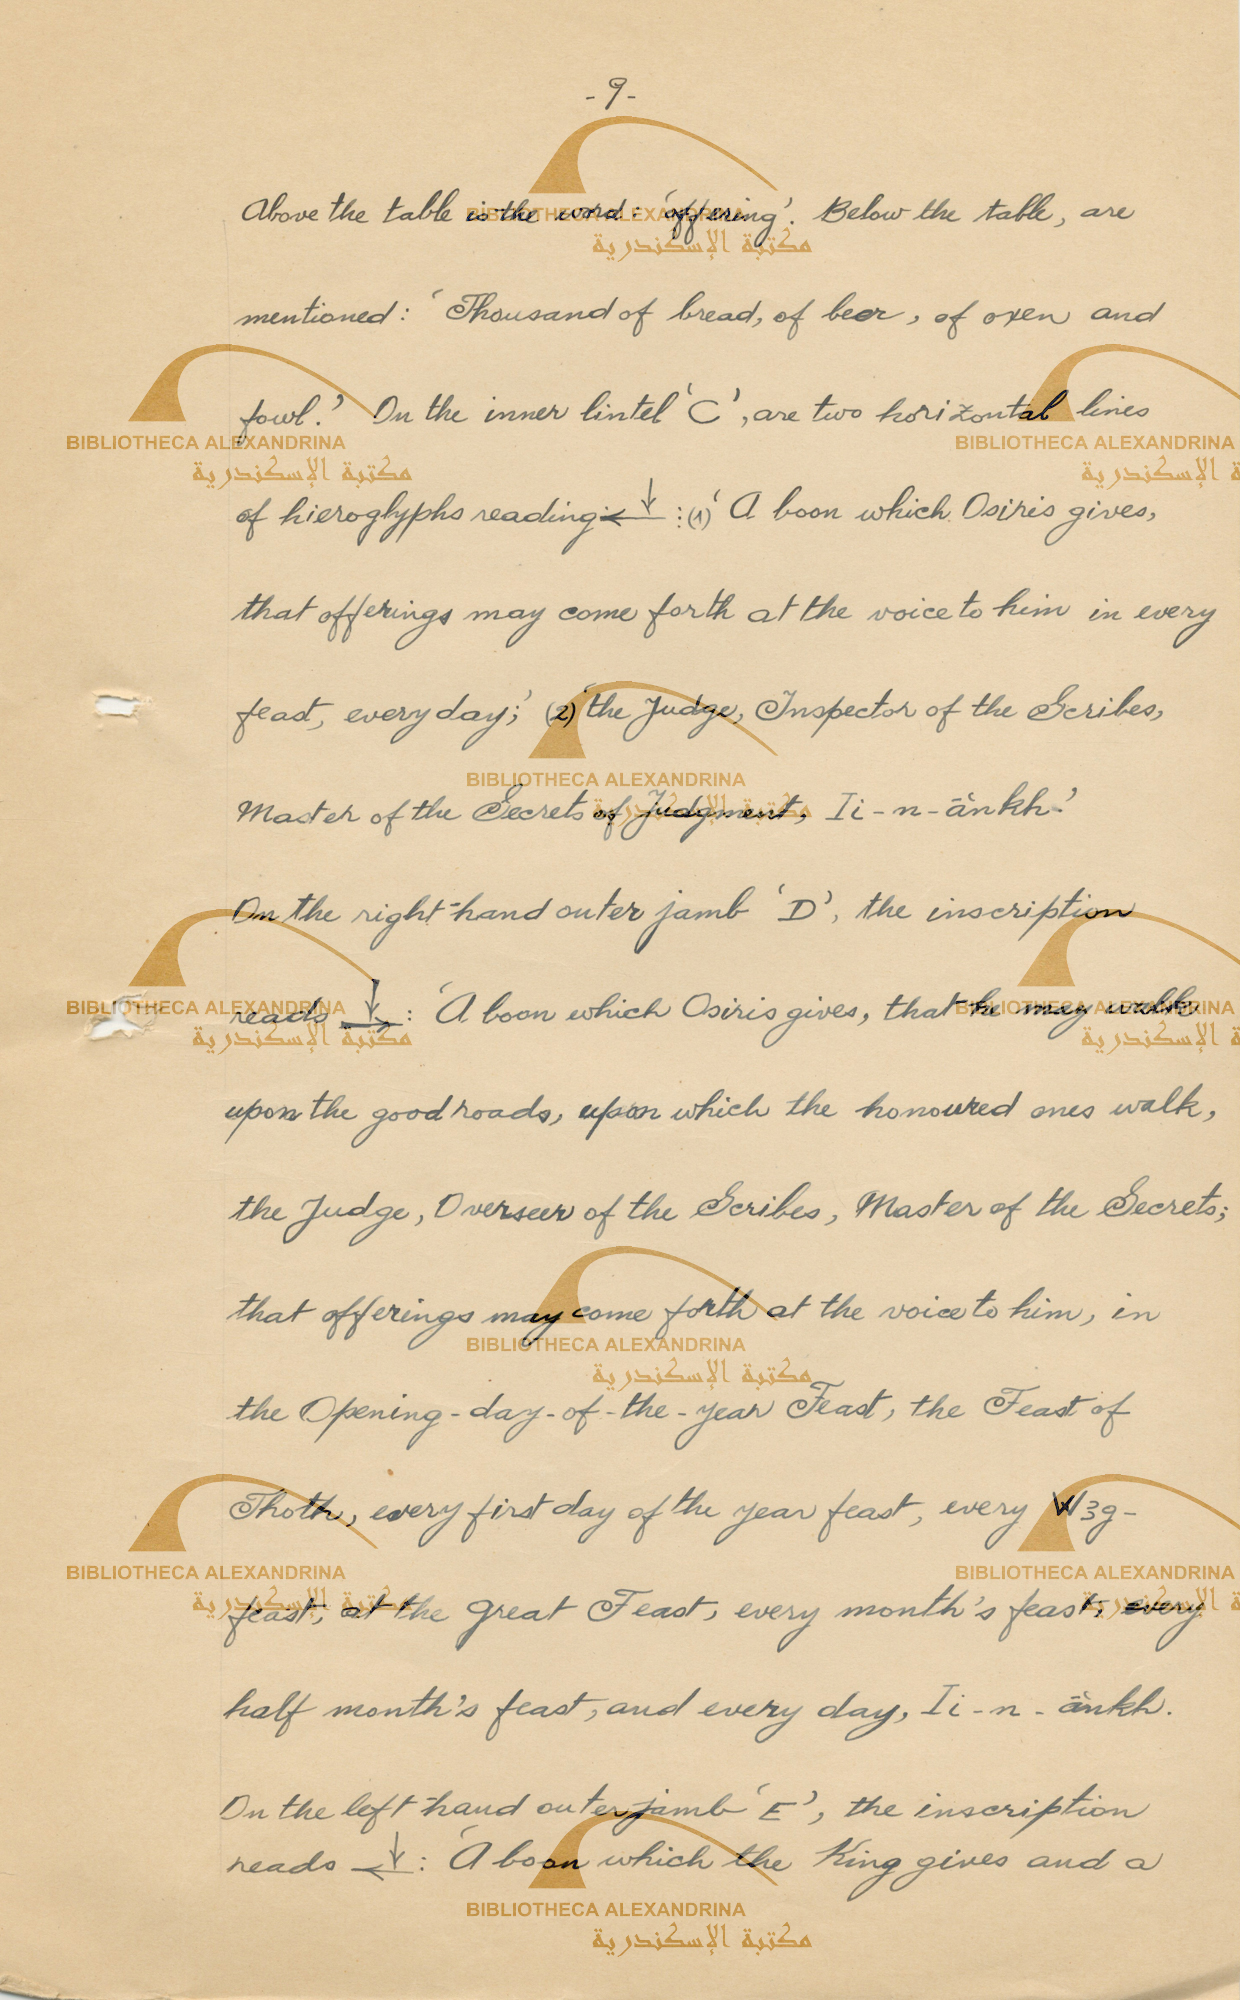 -9-
Above the table is the word: 'offering'. Below the table, are
mentioned: 'Thousand of bread, of beer, of oxen and
fowl.' On the inner lintel 'C', are two horizontal lines
of hieroglyphs reading ← ↓ : (1) 'A boon which Osiris gives,
that offerings may come forth at the voice to him in every
feast, every day;' (2) 'the Judge, Inspector of the Scribes,
Master of the Secrets of Judgment, Ii-n-ānkh.'
On the right-hand outer jamb 'D', the inscription
reads ↓→ : 'A boon which Osiris gives, that he may walk
upon the good roads, upon which the honoured ones walk,
the Judge, Overseer of the Scribes, Master of the Secrets;
that offerings may come forth at the voice to him, in
the Opening-day-of-the-year Feast, the Feast of
Thoth, every first day of the year feast, every W3g-
feast, at the great Feast, every month's feast, every
half month's feast, and every day, Ii-n-ānkh.
On the left-hand outer jamb 'E', the inscription
reads ←↓ : 'A boon which the King gives and a
BIBLIOTHECA ALEXANDRINA
مكتبة الإسكندرية